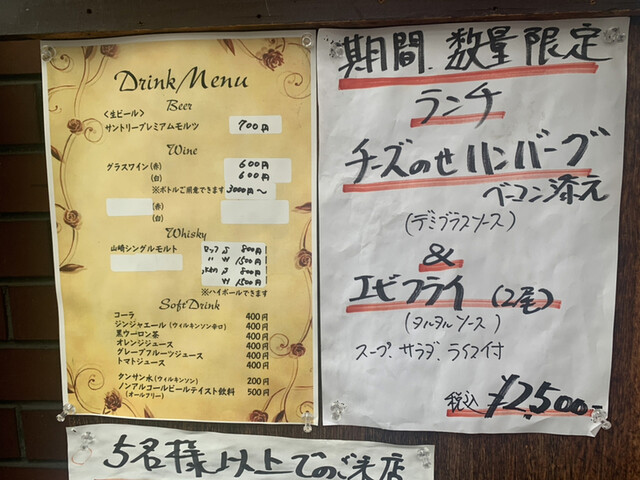 Drink Menu
Beer
〈生ビール〉
サントリープレミアムモルツ 700円
Wine
グラスワイン(赤) 600円
(白) 600円
※ボトルご用意できます 3000円～
(赤)
(白)
Whisky
山崎シングルモルト ロック S 800円
〃 W 1500円
水わり S 800円
〃 W 1500円
※ハイボールできます
Soft Drink
コーラ 400円
ジンジャエール(ウィルキンソン辛口) 400円
黒ウーロン茶 400円
オレンジジュース 400円
グレープフルーツジュース 400円
トマトジュース 400円
タンサン水(ウィルキンソン) 200円
ノンアルコールビールテイスト飲料 500円
(オールフリー)
期間、数量限定
ランチ
チーズのせハンバーグ
ベーコン添え
(デミグラスソース)
&
エビフライ(2尾)
(タルタルソース)
スープ、サラダ、ライス付
税込 ¥2,500-
5名様以上でのご来店